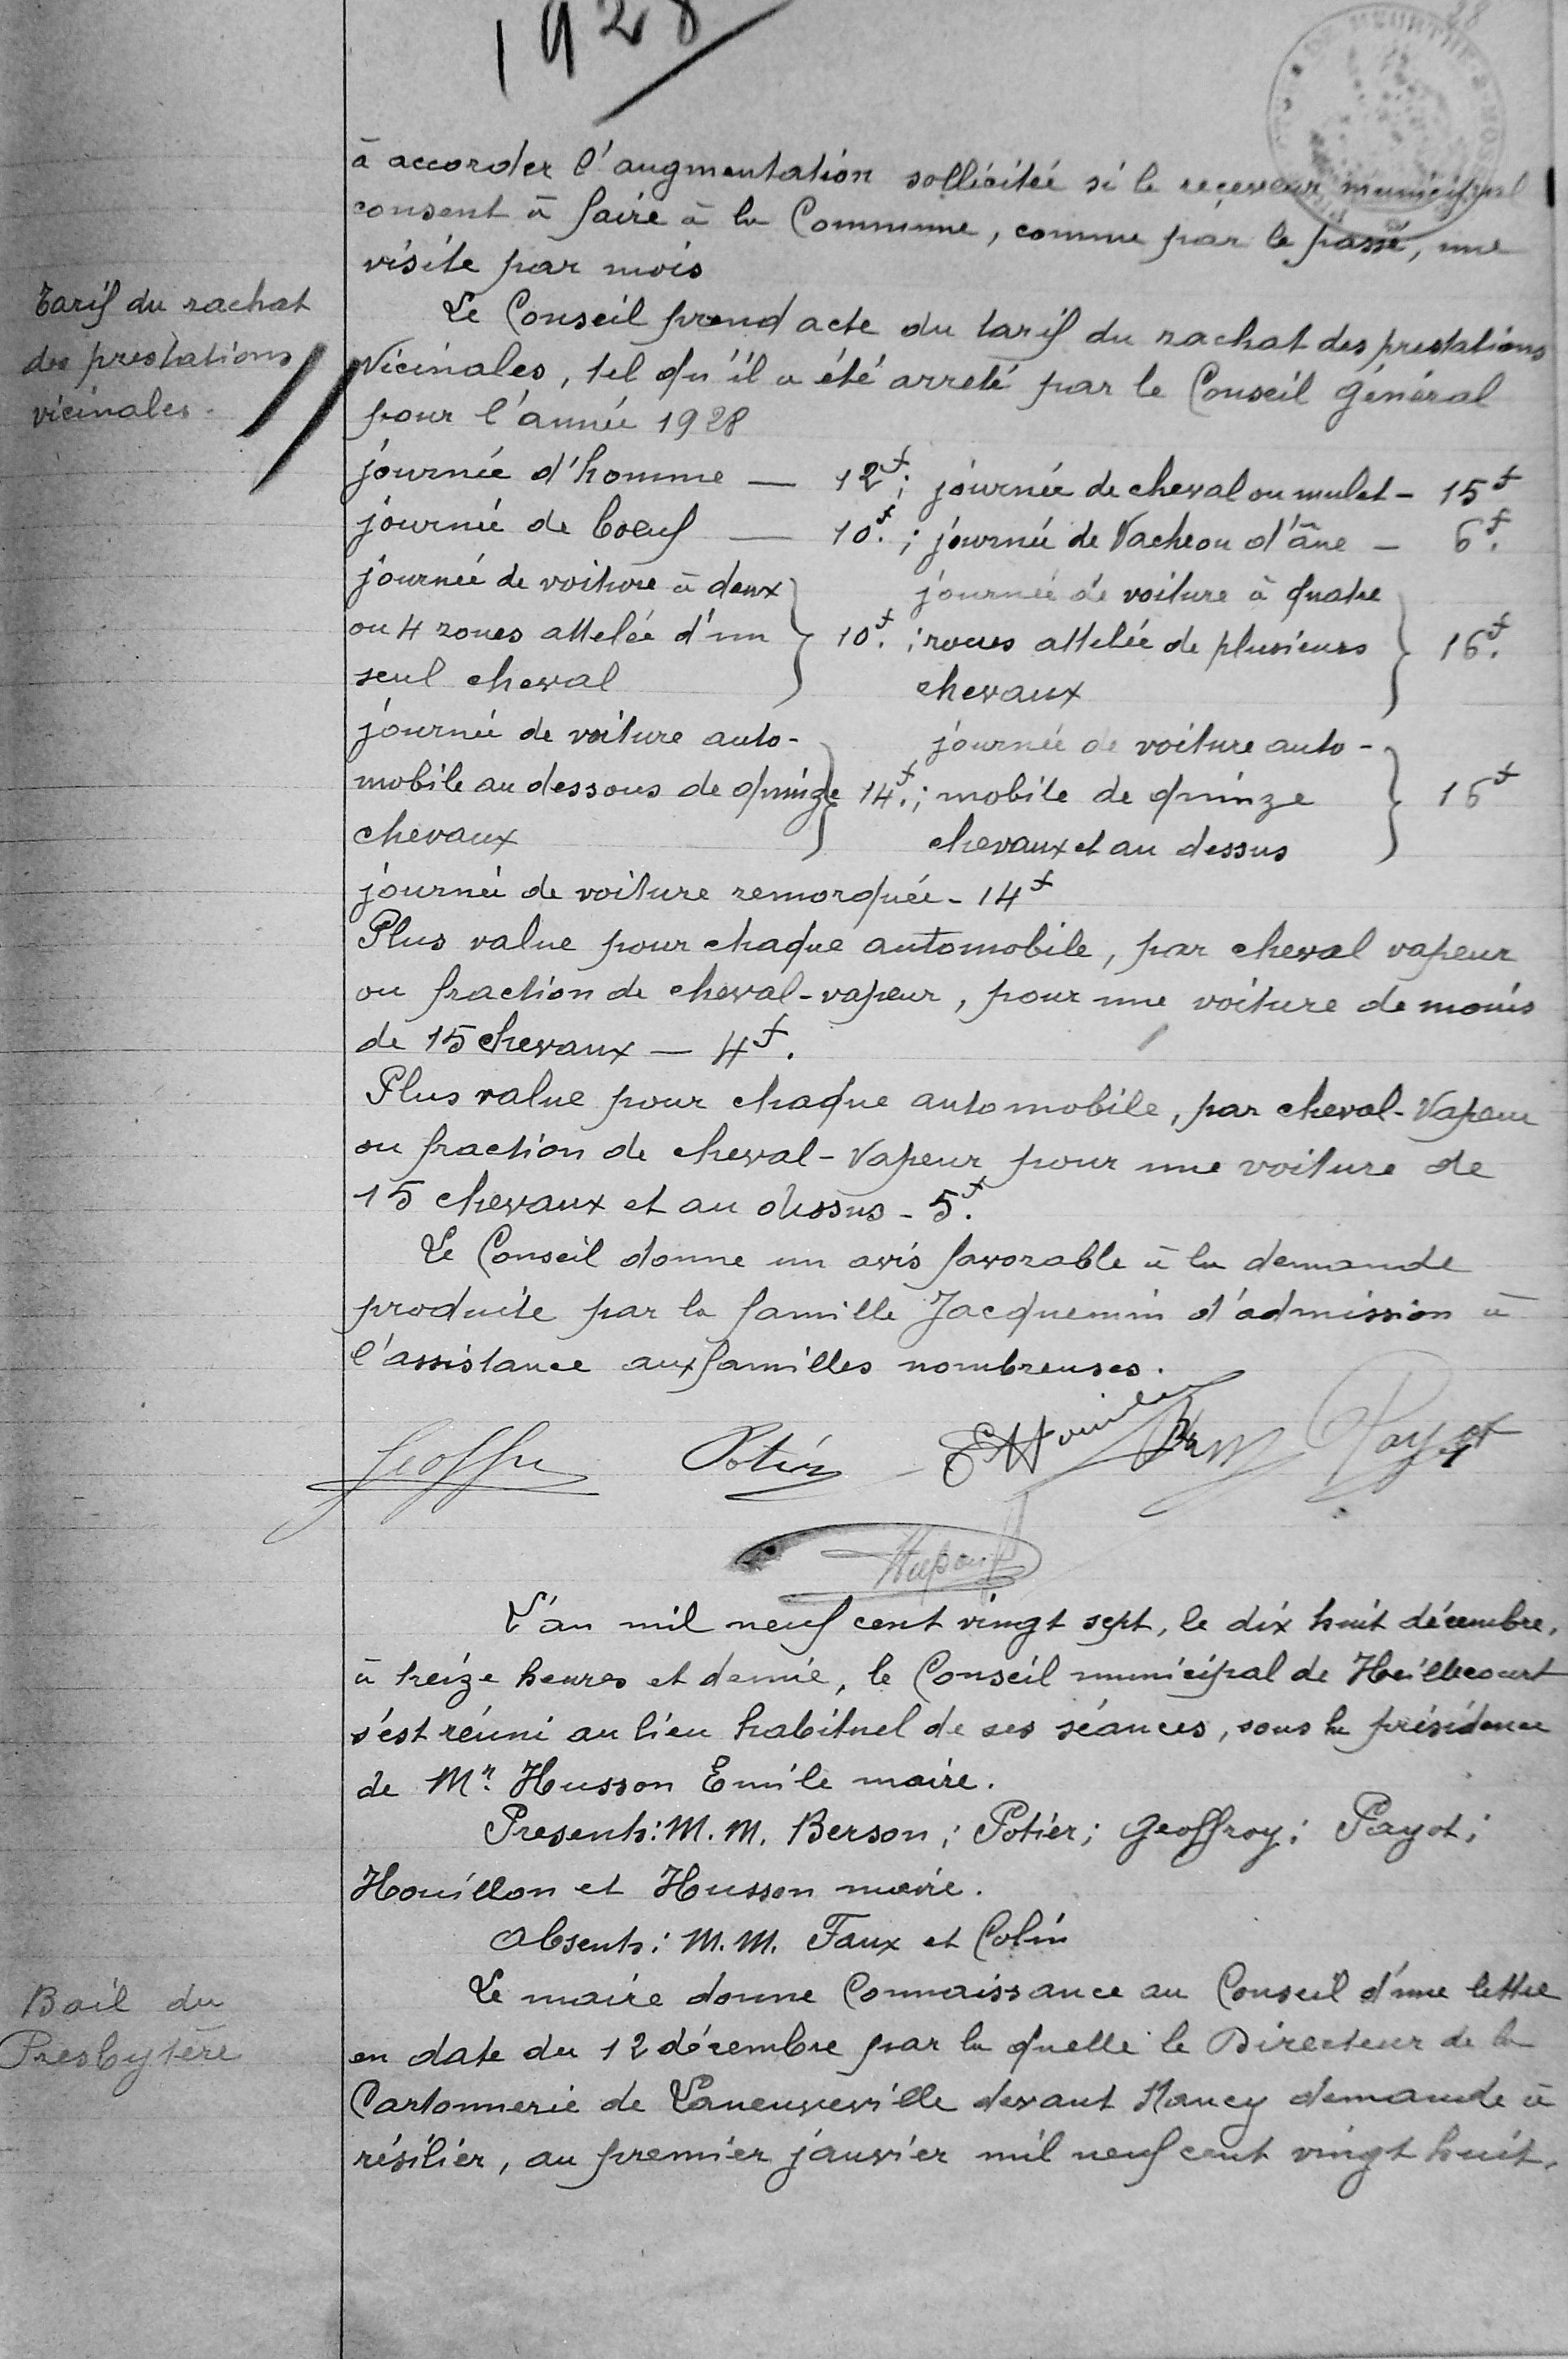 1928
à accorder l'augmentation sollicitée si le receveur municipal
consent à faire à la Commune, comme par le passé, une
visite par mois
Tarif du rachat
des prestations
vicinales.
Le Conseil prend acte du tarif du rachat des prestations
Vicinales, tel qu'il a été arreté par le Conseil général
pour l'année 1928
journée d'homme — 12f; journée de cheval ou mulet - 15f
journée de boeuf — 10f.; journée de Vache ou d'âne - 6f.
journée de voiture à deux journée de voiture à quatre
ou 4 roues attelée d'un } 10f.; roues attelée de plusieurs } 16f.
seul cheval chevaux
journée de voiture auto- journée de voiture auto-
mobile au dessous de quinze } 14f.; mobile de quinze } 16f
chevaux chevaux et au dessus
journée de voiture remorquée - 14f
Plus value pour chaque automobile, par cheval vapeur
ou fraction de cheval-vapeur, pour une voiture de moins
de 15 chevaux — 4f.
Plus value pour chaque automobile, par cheval-Vapeur
ou fraction de cheval-Vapeur pour une voiture de
15 chevaux et au dessus - 5f.
Le Conseil donne un avis favorable à la demande
produite par la famille Jacquemin d'admission à
l'assistance aux familles nombreuses.
Potier Payot
L'an mil neuf cent vingt sept, le dix huit décembre,
à treize heures et demie, le Conseil municipal de Heillecourt
s'est réuni au lieu habituel de ses séances, sous la présidence
de Mr. Husson Emile maire.
Presents: M. M. Berson; Potier; Geoffroy; Payot;
Houillon et Husson maire.
Absents: M. M. Faux et Colin
Bail du
Presbytère
Le maire donne Connaissance au Conseil d'une lettre
en date du 12 décembre par la quelle le Directeur de la
Cartonnerie de Laneuveville devant Nancy demande à
résilier, au premier janvier mil neuf cent vingt huit,